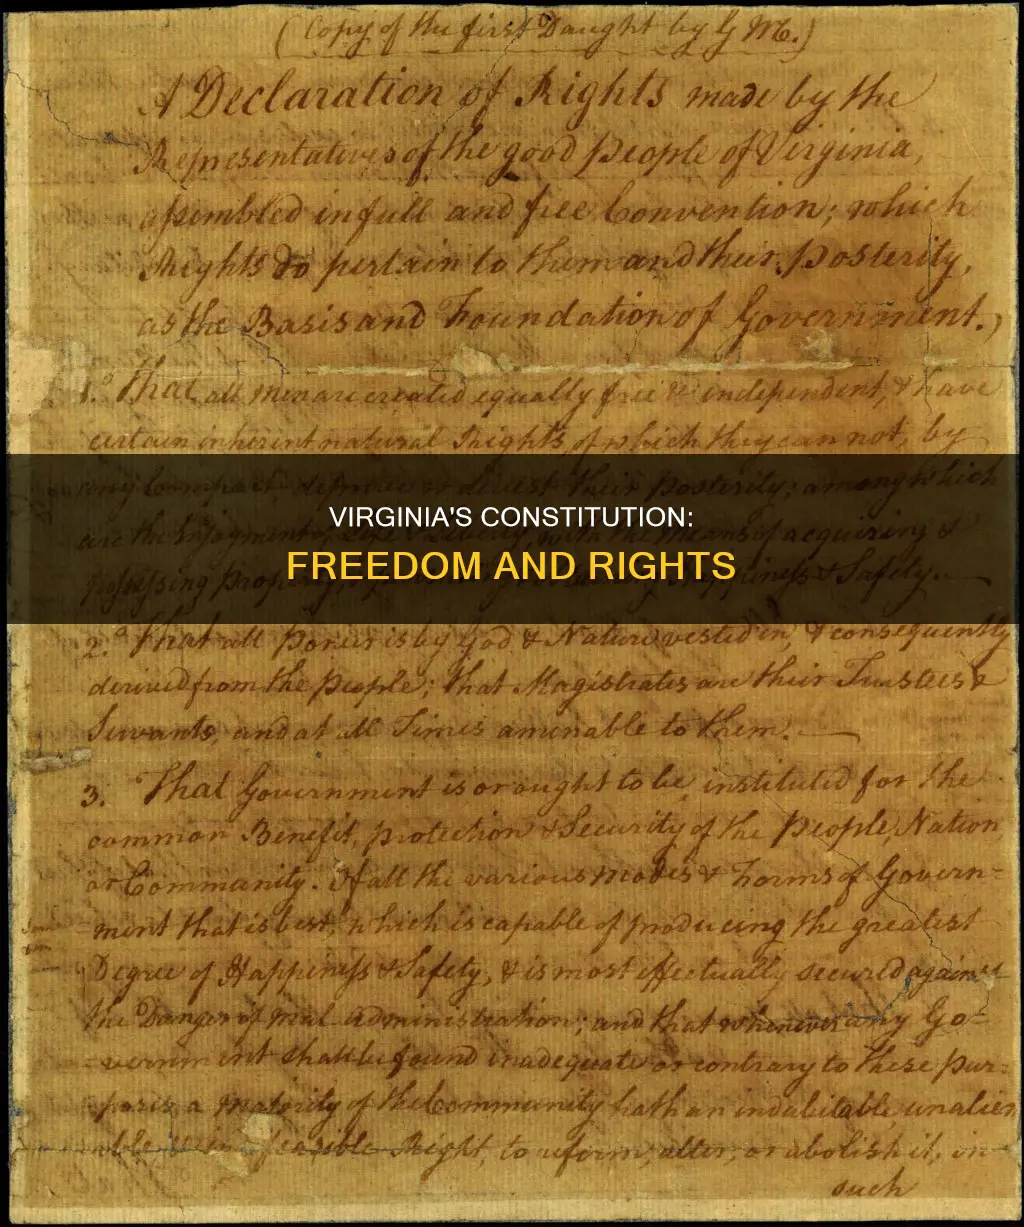 (Copy of the first Daught by G M.)
A Declaration of Rights made by the
Representatives of the good people of Virginia,
assembled in full and free Convention; which
Rights do pertain to them and their posterity,
as the Basis and Foundation of Government.,
1. That all men are created equally free & independent, & have
certain inherent natural Rights, of which they can not, by
any Compact, deprive or divest their Posterity; among which
VIRGINIA'S CONSTITUTION:
are the Enjoyment of Life & Liberty, with the Means of acquiring &
FREEDOM AND RIGHTS
possessing property, Happiness & Safety.
2. That all Power is by God & Nature vested in, & consequently
derived from the People; that Magistrates are their Trustees &
Servants, and at all Times amenable to them.
3. That Government is or ought to be instituted for the
common Benefit, protection & Security of the People, Nation
or Community. Of all the various modes & Forms of Govern=
ment that is best, which is capable of producing the greatest
Degree of Happiness & Safety, & is most effectually secured against
the Danger of mal-administration; and that whenever any Go=
=vernment shall be found inadequate or contrary to these pur=
poses, a majority of the Community hath an indubitable, unalien
able indefeasible Right, to reform, alter, or abolish it, in
such